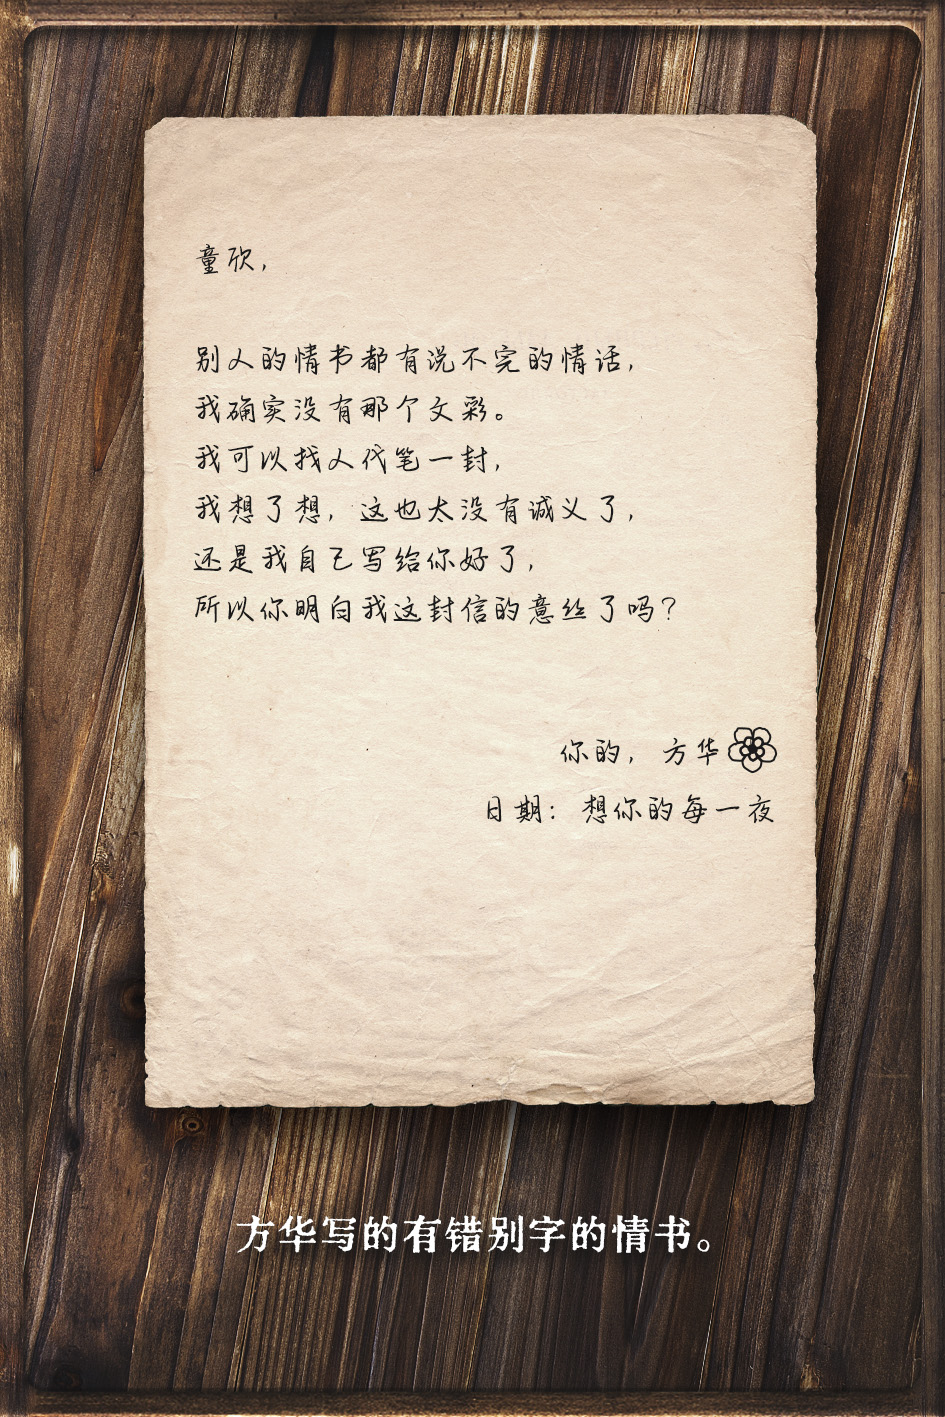 童欣，
别人的情书都有说不完的情话，
我确实没有那个文彩。
我可以找人代笔一封，
我想了想，这也太没有诚义了，
还是我自己写给你好了，
所以你明白我这封信的意丝了吗？
你的，方华
日期：想你的每一夜
方华写的有错别字的情书。